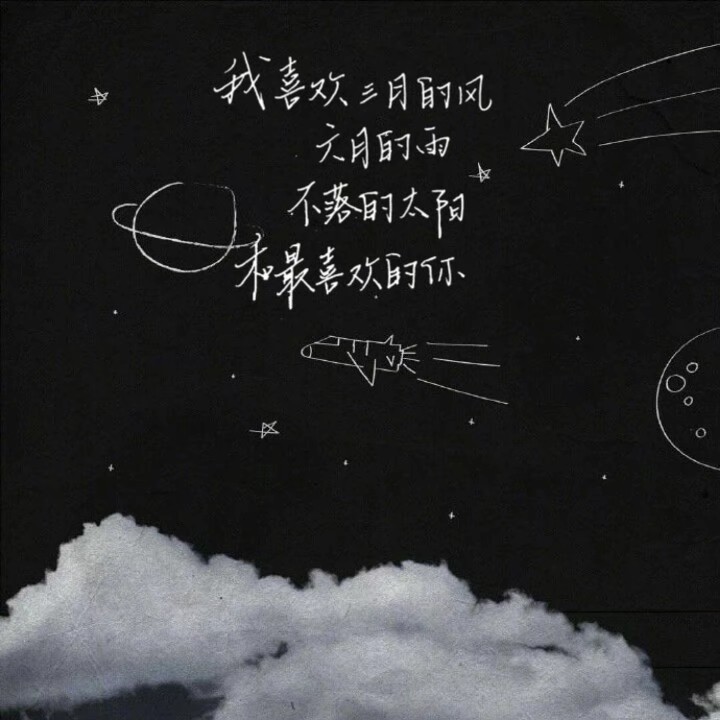 我喜欢三月的风
六月的雨
不落的太阳
和最喜欢的你